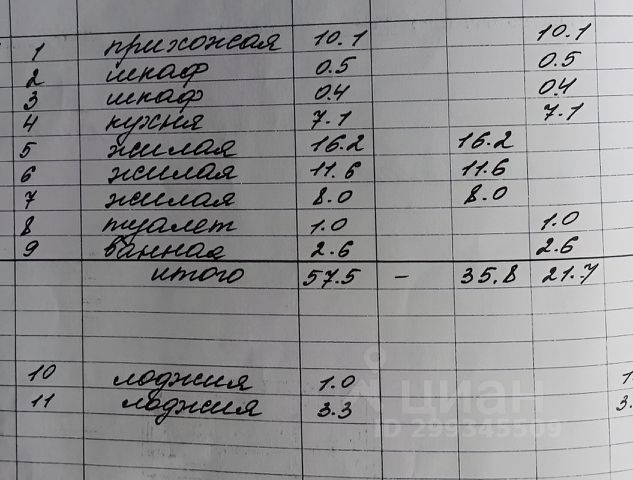 1 прихожая 10.1 10.1
2 шкаф 0.5 0.5
3 шкаф 0.4 0.4
4 кухня 7.1 7.1
5 жилая 16.2 16.2
6 жилая 11.6 11.6
7 жилая 8.0 8.0
8 туалет 1.0 1.0
9 ванная 2.6 2.6
итого 57.5 - 35.8 21.7
10 лоджия 1.0 1
11 лоджия 3.3 3.
циан
ID 299345509